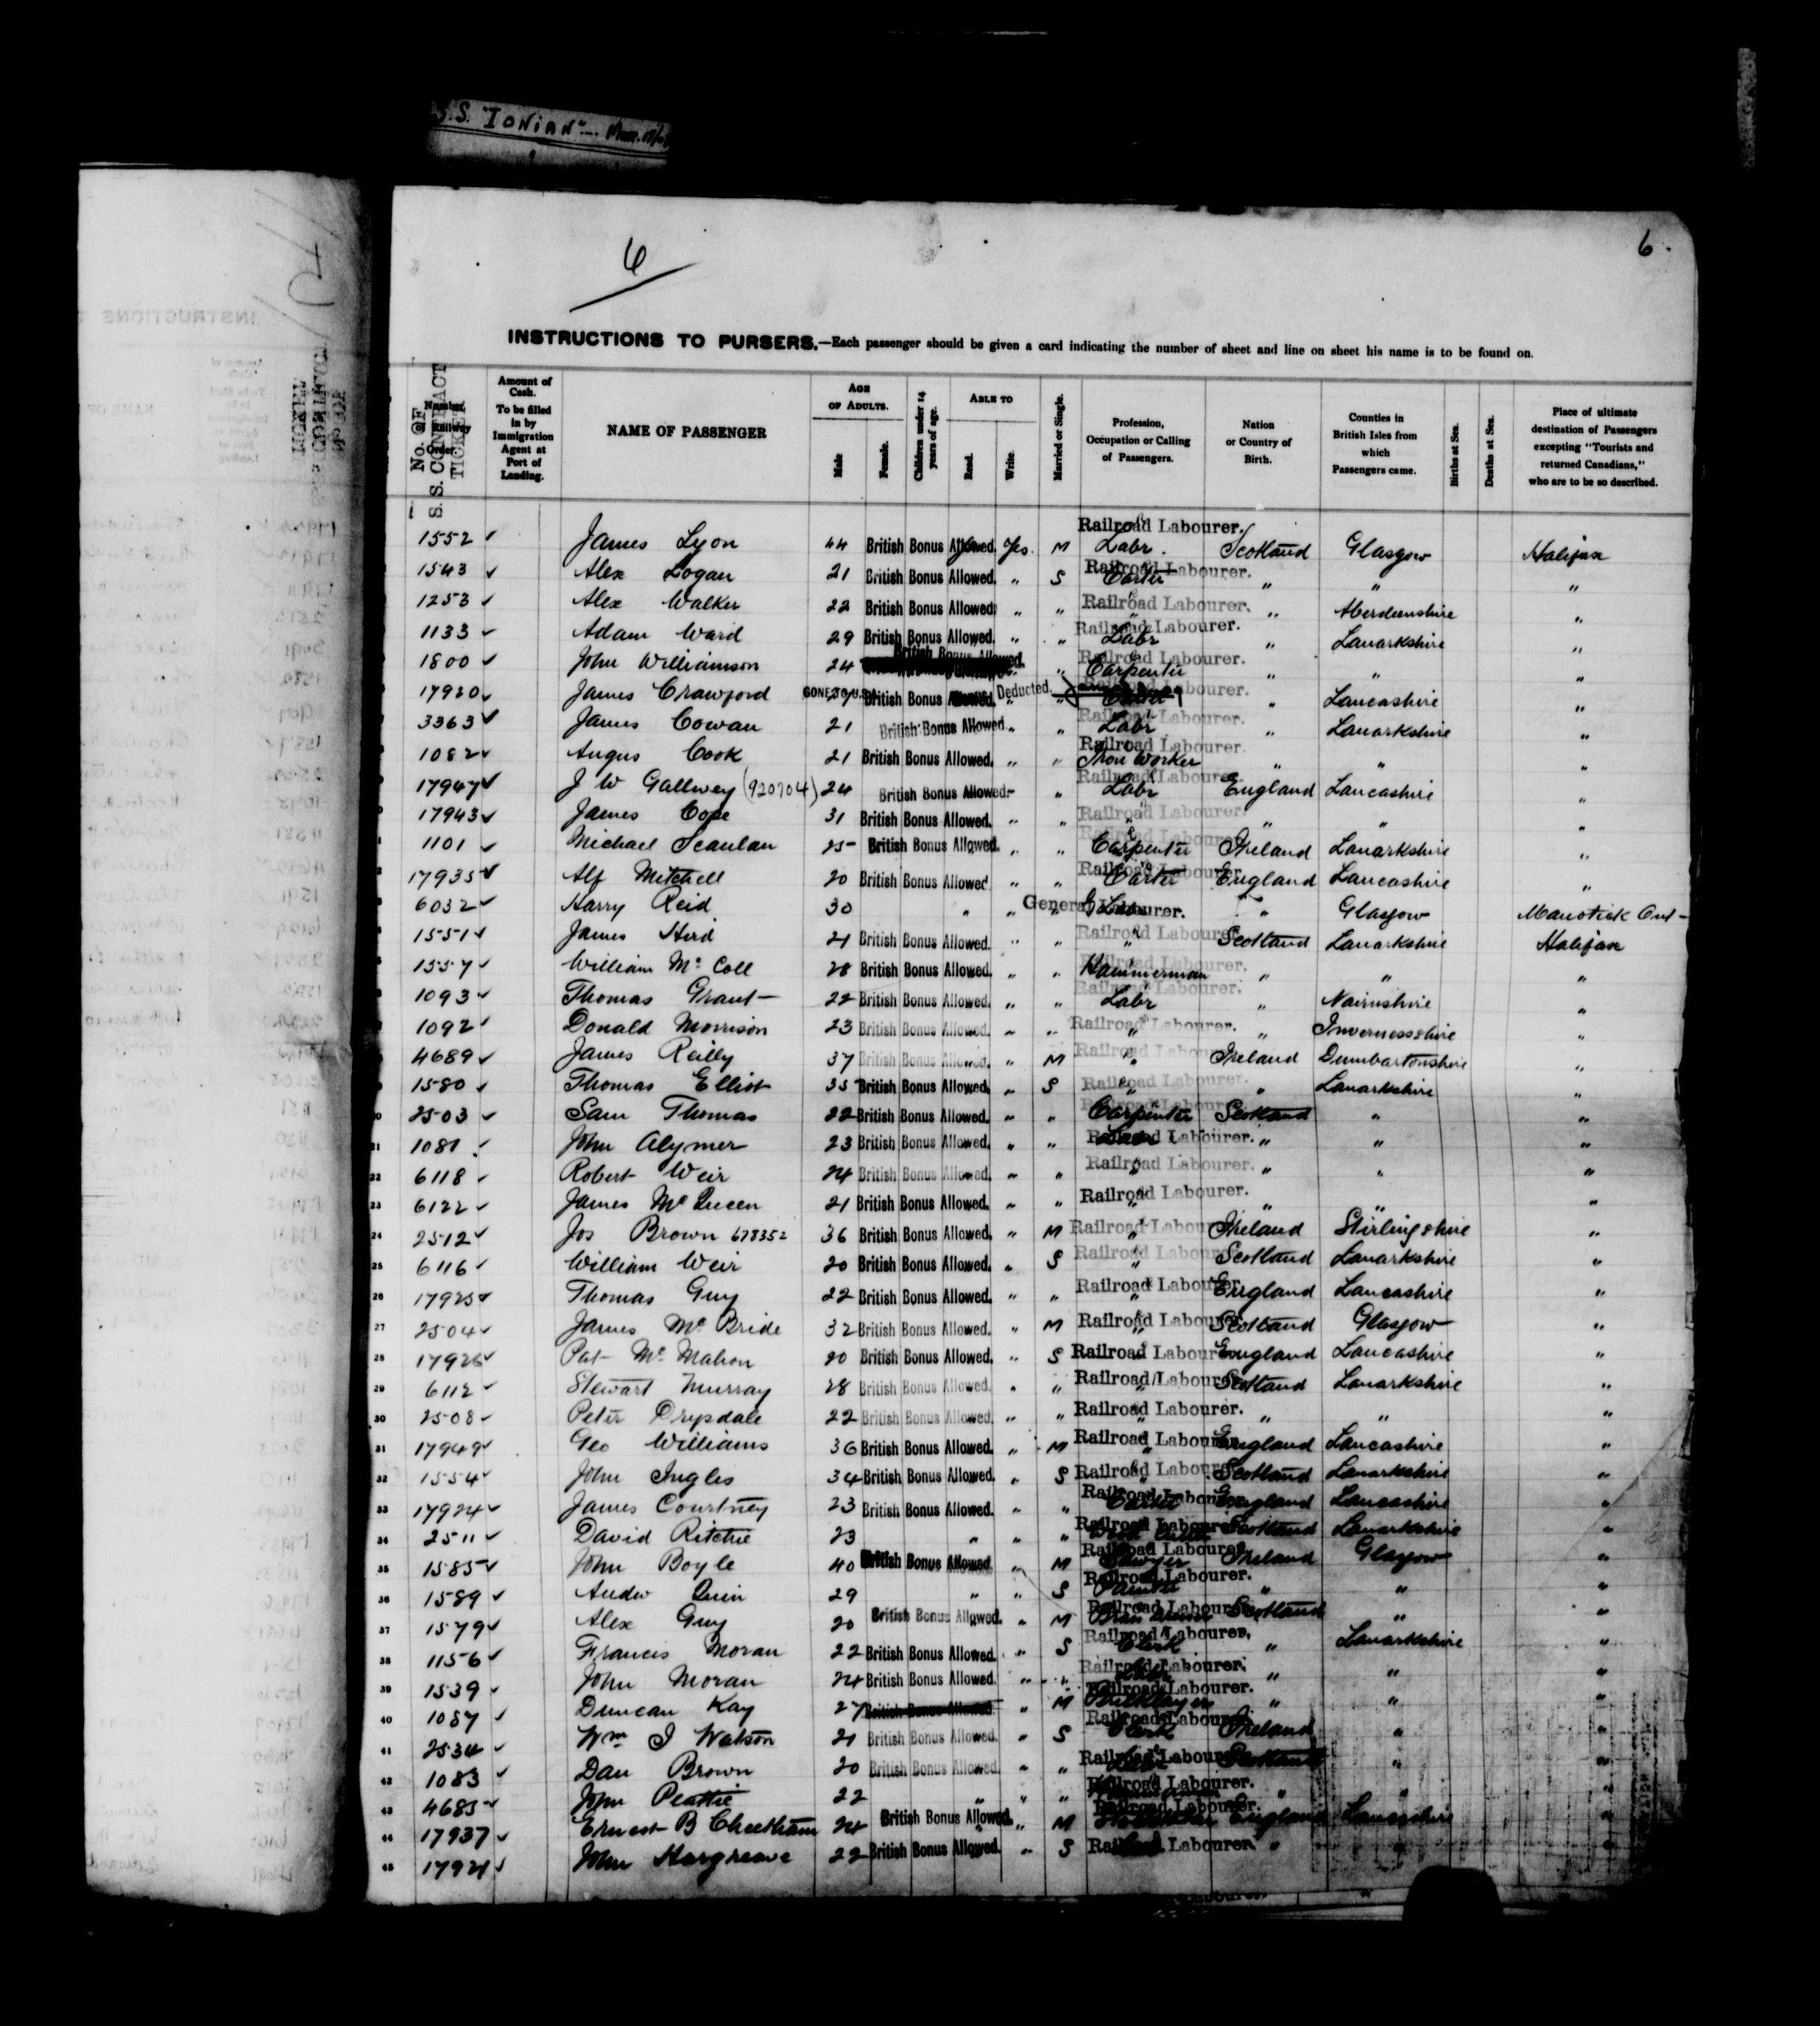 S.S. "IONIAN"
6
6.
INSTRUCTIONS TO PURSERS.—Each passenger should be given a card indicating the number of sheet and line on sheet his name is to be found on.
No. OF S. S. CONTRACT TICKET Number of Railway Order. Amount of Cash. To be filled in by Immigration Agent at Port of Landing. NAME OF PASSENGER AGE OF ADULTS. Male Female. Children under 14 years of age. ABLE TO Read. Write. Married or Single. Profession, Occupation or Calling of Passengers. Nation or Country of Birth. Counties in British Isles from which Passengers came. Births at Sea. Deaths at Sea. Place of ultimate destination of Passengers excepting "Tourists and returned Canadians," who are to be so described.
1552 ✓ James Lyon 44 British Bonus Allowed. Yes M Railroad Labourer. Labr. Scotland Glasgow Halifax
1543 ✓ Alex Logan 21 British Bonus Allowed. " S Railroad Labourer. Carter " " "
1253 ✓ Alex Walker 22 British Bonus Allowed. " " Railroad Labourer. " " Aberdeenshire "
1133 ✓ Adam Ward 29 British Bonus Allowed. " " Railroad Labourer. Labr " Lanarkshire "
1800 ✓ John Williamson 24 British Bonus Allowed. " Railroad Labourer. Carpenter " " "
17920 ✓ James Crawford GONE TO U.S. 27 British Bonus Allowed. Deducted. " Railroad Labourer. Carter " Lancashire "
3363 ✓ James Cowan 21 British Bonus Allowed. " " Railroad Labourer. Labr " Lanarkshire "
1082 ✓ Angus Cook 21 British Bonus Allowed. " " Railroad Labourer. Iron Worker " " "
17947 ✓ J W Gallwey (920704) 24 British Bonus Allowed. " " Railroad Labourer. Labr England Lancashire "
17943 ✓ James Cope 31 British Bonus Allowed. " " Railroad Labourer. " " " "
1101 ✓ Michael Scanlan 25 British Bonus Allowed. " " Railroad Labourer. Carpenter Ireland Lanarkshire "
17935 ✓ Alf Mitchell 20 British Bonus Allowed. " " Railroad Labourer. Carter England Lancashire "
6032 ✓ Harry Reid 30 " " " General Labourer. " Glasgow Manotick Ont
1551 ✓ James Hird 21 British Bonus Allowed. " " Railroad Labourer. " Scotland Lanarkshire Halifax
1557 ✓ William Mc Coll 28 British Bonus Allowed. " " Railroad Labourer. Hammerman " " "
1093 ✓ Thomas Grant 22 British Bonus Allowed. " " Railroad Labourer. Labr " Nairnshire "
1092 ✓ Donald Morrison 23 British Bonus Allowed. " " Railroad Labourer. " " Invernessshire "
4689 ✓ James Reilly 37 British Bonus Allowed. " M Railroad Labourer. " Ireland Dumbartonshire "
1580 ✓ Thomas Elliot 35 British Bonus Allowed. " S Railroad Labourer. " " Lanarkshire "
20 2503 ✓ Sam Thomas 22 British Bonus Allowed. " " Railroad Labourer. Carpenter Scotland " "
21 1081 ✓ John Alymer 23 British Bonus Allowed. " " Railroad Labourer. Labr " " "
22 6118 ✓ Robert Weir 24 British Bonus Allowed. " " Railroad Labourer. " " " "
23 6122 ✓ James McQueen 21 British Bonus Allowed. " " Railroad Labourer. " " " "
24 2512 ✓ Jos Brown 678352 36 British Bonus Allowed. " M Railroad Labourer. " Ireland Stirlingshire "
25 6116 ✓ William Weir 20 British Bonus Allowed. " S Railroad Labourer. " Scotland Lanarkshire "
26 17925 ✓ Thomas Guy 22 British Bonus Allowed. " " Railroad Labourer. " England Lancashire "
27 2504 ✓ James Mc Bride 32 British Bonus Allowed. " M Railroad Labourer. " Scotland Glasgow "
28 17926 ✓ Pat Mc Mahon 20 British Bonus Allowed. " S Railroad Labourer. " England Lancashire "
29 6112 ✓ Stewart Murray 28 British Bonus Allowed. " " Railroad Labourer. " Scotland Lanarkshire "
30 2508 ✓ Peter Drysdale 22 British Bonus Allowed. " " Railroad Labourer. " " " "
31 17949 ✓ Geo Williams 36 British Bonus Allowed. " M Railroad Labourer. " England Lancashire "
32 1554 ✓ John Ingles 34 British Bonus Allowed. " S Railroad Labourer. " Scotland Lanarkshire "
33 17924 ✓ James Courtney 23 British Bonus Allowed. " " Railroad Labourer. Carter England Lancashire "
34 2511 ✓ David Ritchie 23 " " " Railroad Labourer. Scotland Lanarkshire "
35 1585 ✓ John Boyle 40 British Bonus Allowed. " M Railroad Labourer. Sawyer Ireland Glasgow "
36 1589 ✓ Andw Quin 29 " " S Railroad Labourer. Painter " " "
37 1579 ✓ Alex Guy 20 British Bonus Allowed. " M Railroad Labourer. Scotland " "
38 1156 ✓ Francis Moran 22 British Bonus Allowed. " S Railroad Labourer. Clerk " Lanarkshire "
39 1539 ✓ John Moran 24 British Bonus Allowed. " " Railroad Labourer. Labr " " "
40 1087 ✓ Duncan Kay 27 British Bonus Allowed " M Railroad Labourer. Bricklayer " " "
41 2534 ✓ Wm I Watson 21 British Bonus Allowed. " S Railroad Labourer. Clerk Ireland " "
42 1083 ✓ Dan Brown 20 British Bonus Allowed. " " Railroad Labourer. Labr Scotland " "
43 4685 ✓ John Peattie 22 " " " Railroad Labourer. " " "
44 17937 ✓ Ernest B Cheetham 24 British Bonus Allowed. " M Railroad Labourer. England Lancashire "
45 17921 ✓ John Hargreave 22 British Bonus Allowed. " S Railroad Labourer. " " "